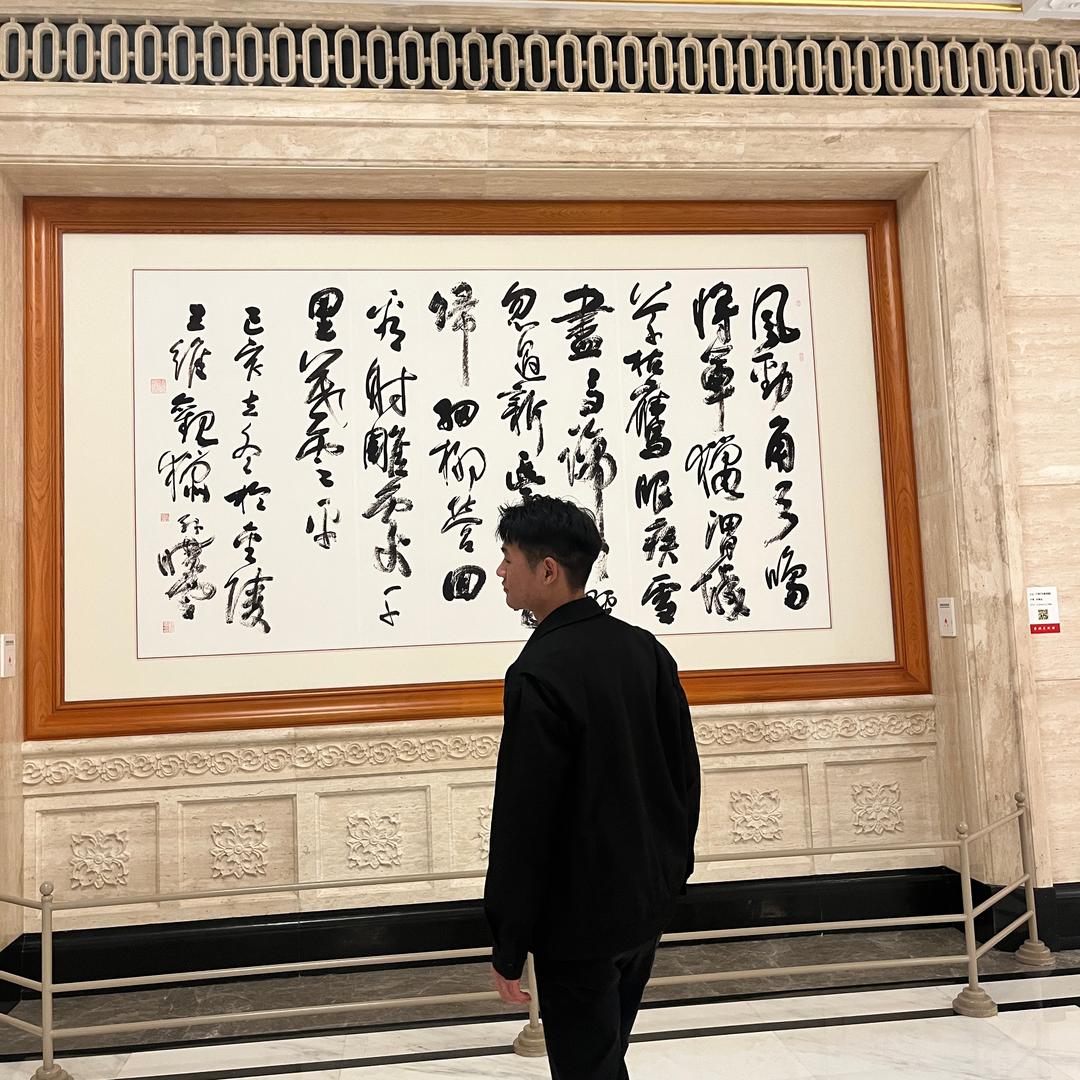 風勁角弓鳴
將軍獵渭城
草枯鷹眼疾雪
盡馬蹄
忽過新豐
歸細柳營回
看射雕處千
里暮雲平
己亥冬於金陵
王維觀獵 孫曉雲